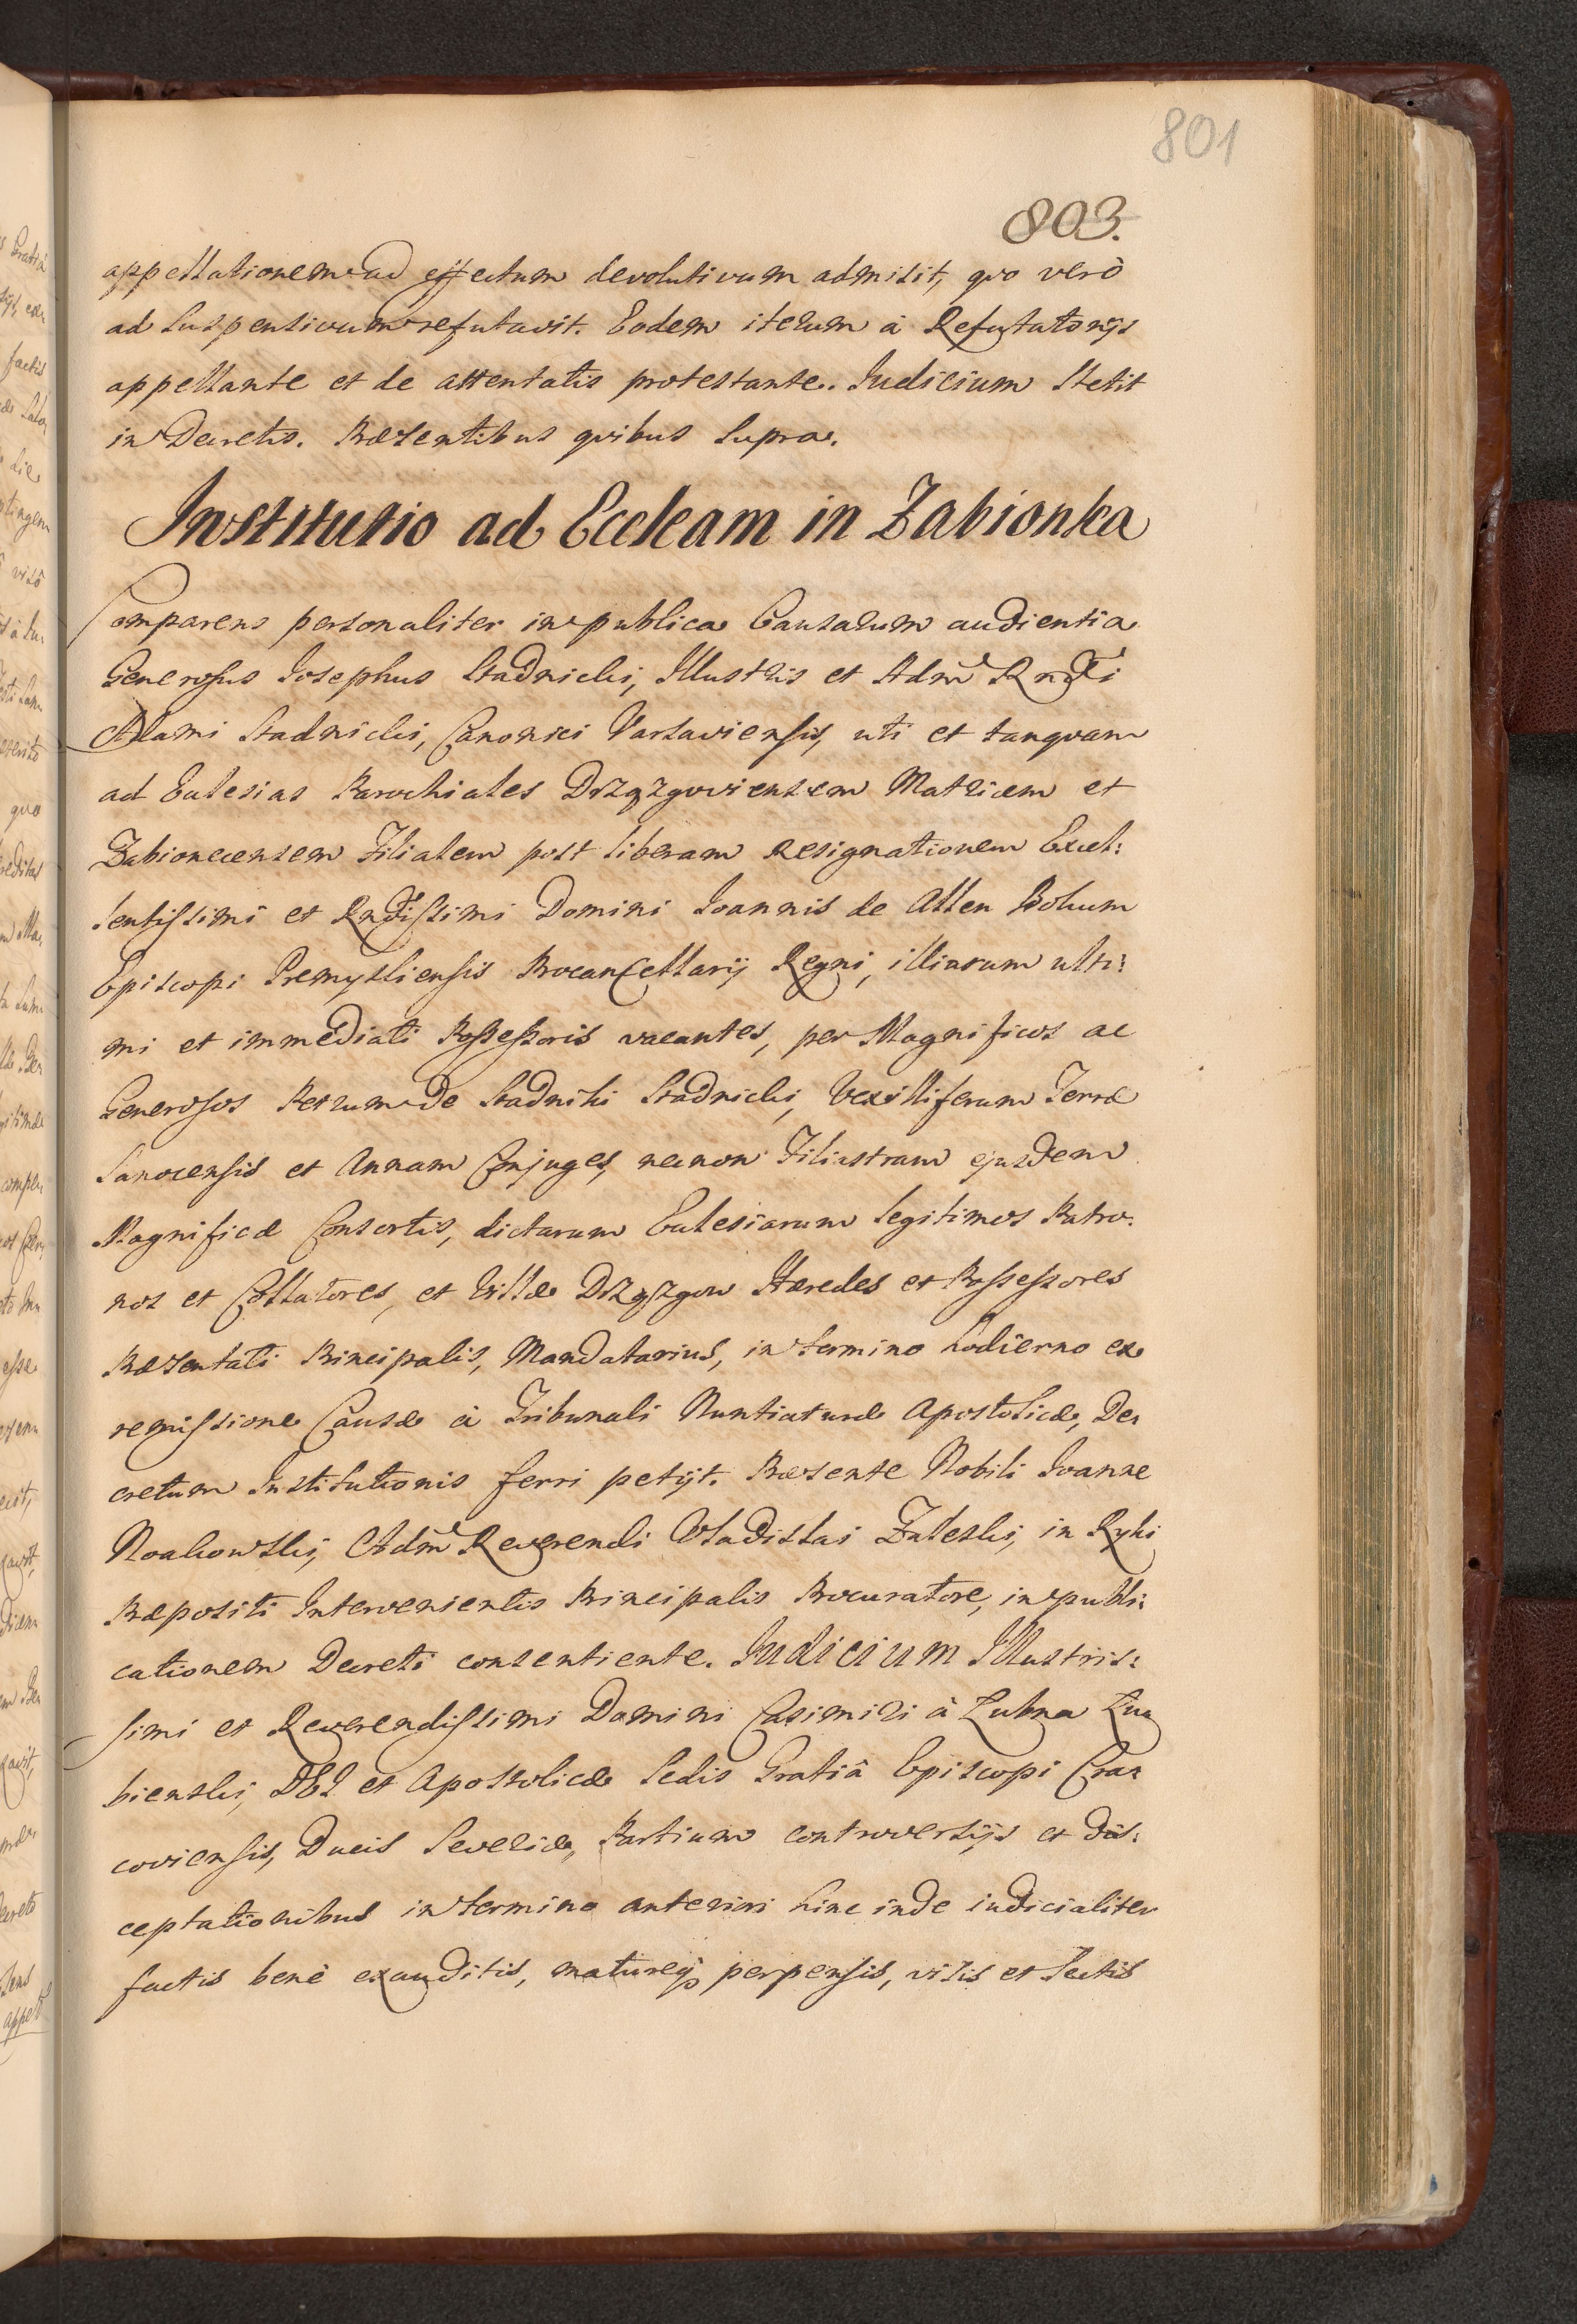 801
803.
appellationem ad effectum devolutivum admisit, quo verò
ad suspensivum refutavit. Eodem iterum à Refutatorijs
appellante et de attentatis protestante. Iudicium stetit
in Decretis. Præsentibus quibus supra.
Institutio ad Eccleam in Żabionka
Comparens personaliter in publica Causarum audientia
Generosus Josephus Stadnicki, Illustris et Adm Rndi
Adami Stadnicki, Canonici Varsaviensis, uti et tanquam
ad Ecclesias Parochiales Drzązgoviensem Matricem et
Żabionecensem Filialem post liberam resignationem Excel:
lentissimi et Rndissimi Domini Joannis de Alten Bokum
Episcopi Premysliensis Procancellarij Regni, illiarum ulti:
mi et immediati Possessoris vacantes, per Magnificos ac
Generosos Petrum de Stadniki Stadnicki, Vexilliferum Terræ
Sanocensis et Annam Conjuges, necnon Filiastram ejusdem
Magnificæ Consortis, dictarum Ecclesiarum legitimos Patro:
nos et Collatores, et Villæ Drzązgow Hæredes et Possessores
Præsentati Principalis, Mandatarius, in termino hodierno ex
remissione Causæ à Tribunali Nuntiaturæ Apostolicæ, De:
cretum Institutionis ferri petijt. Præsente Nobili Joanne
Noakowski, Adm Reverendi Vladislai Zaleski, in Ryki
Præpositi Intervenientis Principalis Procuratore, in publi:
cationem Decreti consentiente. Iudicium Illustris:
simi et Reverendissimi Domini Casimiri à Łubna Łu:
bienski, DEI et Apostolicæ Sedis Gratiâ Episcopi Cra:
coviensis, Ducis Severiæ, Partium controversijs et dis:
ceptationibus in termino anteriori hinc inde iudicialiter
factis benè exauditis, matureq; perpensis, visis et lectis